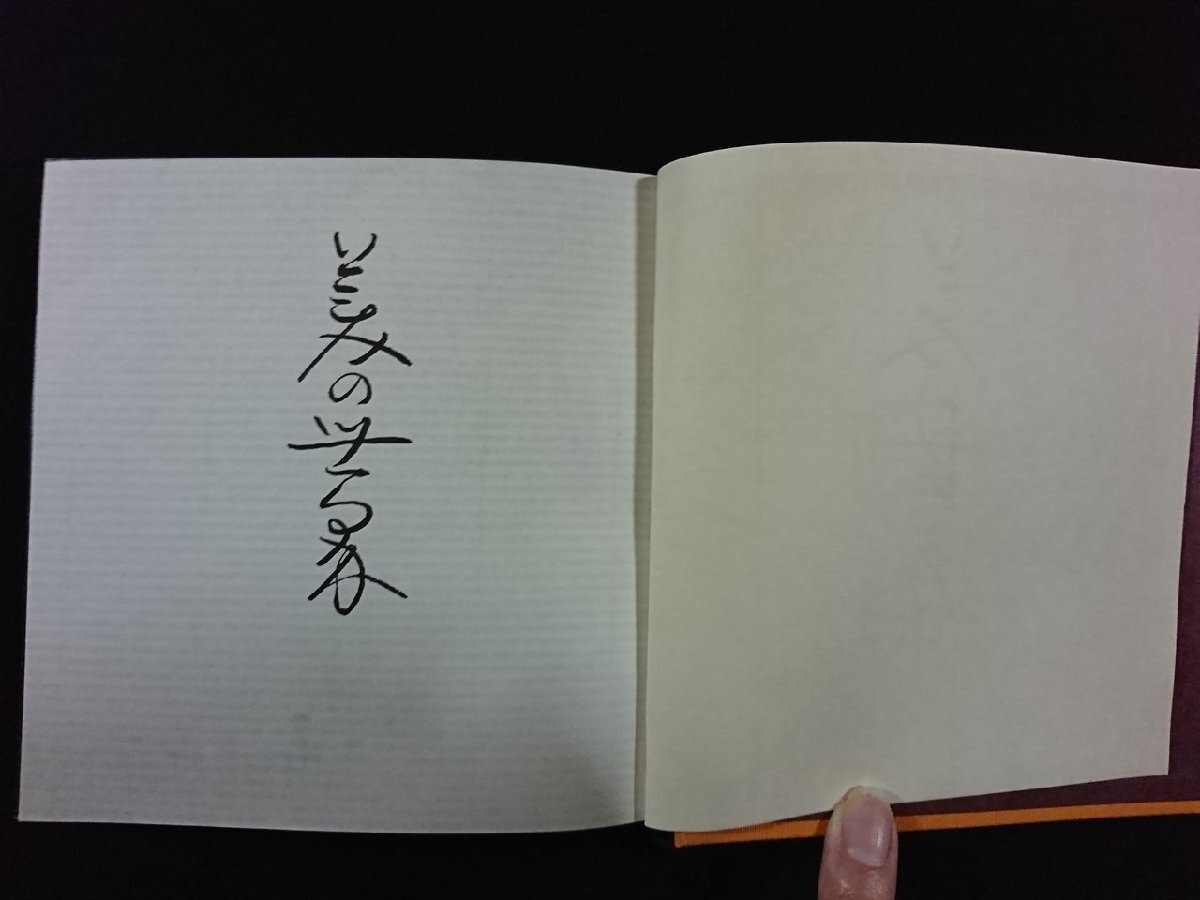 美の世界